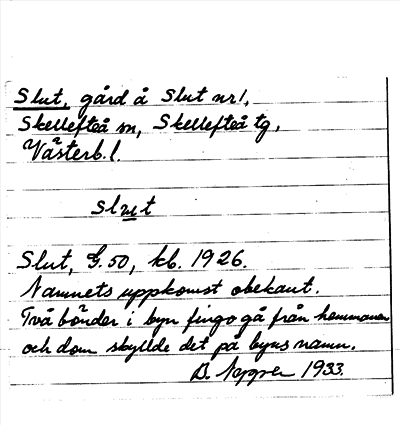 Slut, gård å Slut nr 1,
Skellefteå sn, Skellefteå tg,
Västerb. l.
slut
Slut, G. 50, kb. 1926.
Namnets uppkomst obekant.
Två bönder i byn fingo gå från hemmanen
och dom skyllde det på byns namn.
D. 1933.